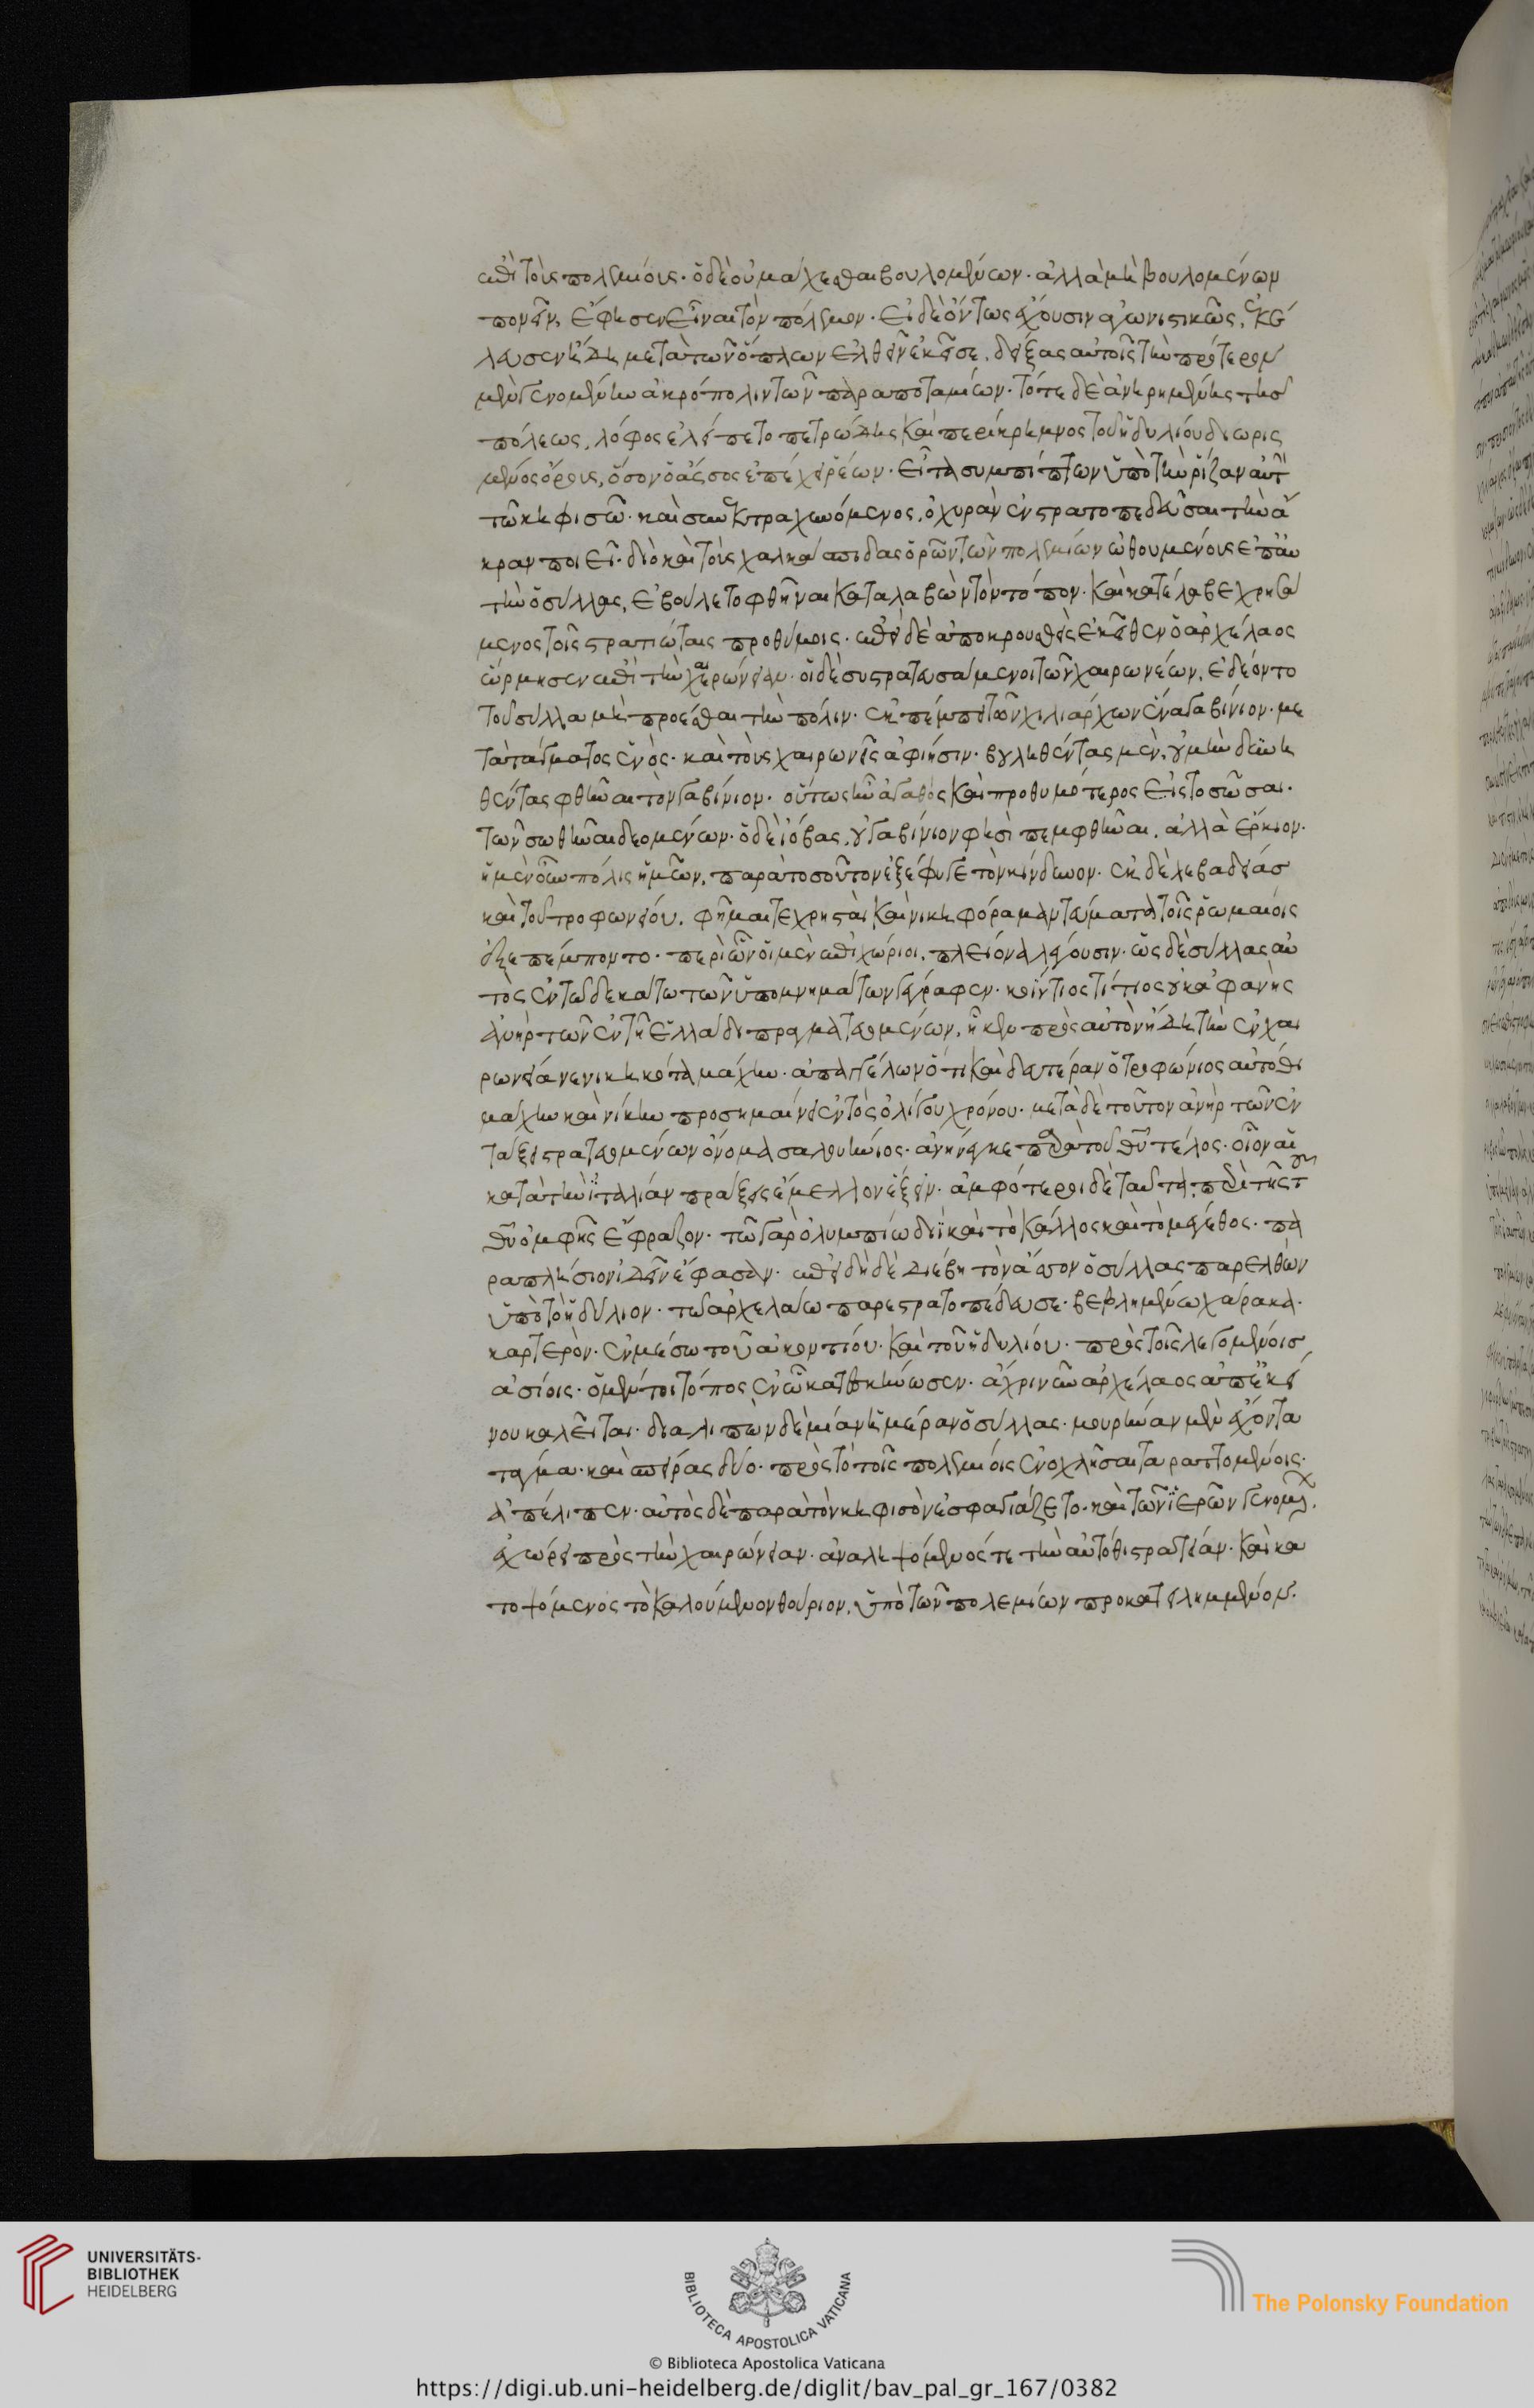 ἐπὶ τοὺς πολεμίους· ὁ δὲ οὐ μάχεσθαι βουλομένων· ἀλλὰ μὴ βουλομένων
πονεῖν, ἔφησεν εἶναι τὸν πόλεμον· εἰ δὲ ὄντως ἔχουσιν ἀγωνιστικῶς, ἐκέ
λευσεν ἤδη μετὰ τῶν ὅπλων ἐλθεῖν ἐκεῖσε, δείξας αὐτοῖς τὴν πρότερον
μὲν γενομένην ἀκρόπολιν τῶν παραποταμίων· τότε δὲ ἀνῃρημένης τῆς
πόλεως, λόφος ἐλείπετο πετρώδης καὶ περίκρημνος τοῦ ἡδυλίου διωρισ
μένος ὄρους, ὅσον ὁ ἄσσος ἐπέχει ῥέων· εἶτα συμπίπτων ὑπὸ τὴν ῥίζαν αὐτὴν
τῷ κηφισῷ· καὶ συνεκτραχυνόμενος, ὀχυρὰν ἐνστρατοπεδεῦσαι τὴν ἄ
κραν ποιεῖ· διὸ καὶ τοὺς χαλκάσπιδας ὁρῶν τῶν πολεμίων ὠθουμένους ἐπ' αὐ
τὴν ὁ σύλλας, ἐβούλετο φθῆναι καταλαβὼν τὸν τόπον· καὶ κατέλαβε χρησά
μενος τοῖς στρατιώταις προθύμοις· ἐπεὶ δὲ ἀποκρουσθεὶς ἐκεῖθεν ὁ ἀρχέλαος
ὥρμησεν ἐπὶ τὴν χαιρώνειαν· οἱ δὲ συστρατευσάμενοι τῶν χαιρωνέων, ἐδέοντο
τοῦ σύλλα μὴ προέσθαι τὴν πόλιν· ἐκπέμπει τῶν χιλιάρχων ἕνα γαβίνιον· με
τὰ τάγματος ἑνός· καὶ τοὺς χαιρωνεῖς ἀφίησιν· βουληθέντας μὲν, οὐ μὴν δυνη
θέντας φθῆναι τὸν γαβίνιον· οὕτως ἦν ἀγαθὸς καὶ προθυμότερος εἰς τὸ σῶσαι·
τῶν σωθῆναι δεομένων· ὁ δὲ ἰόβας, οὐ γαβίνιον φησὶ πεμφθῆναι, ἀλλὰ ἐρίκιον·
ἡ μὲν οὖν πόλις ἡμῶν, παρὰ τοσοῦτον ἐξέφυγε τὸν κίνδυνον· ἐκ δὲ λεβαδείας
καὶ τοῦ τροφωνίου, φῆμαί τε χρησταὶ καὶ νικηφόρα μαντεύματα τοῖς ῥωμαίοις
ἐξεπέμποντο· περὶ ὧν οἱ μὲν ἐπιχώριοι, πλείονα λέγουσιν· ὡς δὲ σύλλας αὐ
τὸς ἐν τῷ δεκάτῳ τῶν ὑπομνημάτων γέγραφεν· κοΐντιος τίτιος οὐκ ἀφανὴς
ἀνὴρ τῶν ἐν τῇ ἑλλάδι πραγματευομένων, ἧκεν πρὸς αὐτὸν ἤδη τὴν ἐν χαι
ρωνείᾳ νενικηκότα μάχην· ἀπαγγέλων ὅτι καὶ δευτέραν ὁ τροφώνιος αὐτόθι
μάχην καὶ νίκην προσημαίνει ἐντὸς ὀλίγου χρόνου· μετὰ δὲ τοῦτον ἀνὴρ τῶν ἐν
τάξει στρατευομένων ὄνομα σαλουήνιος· ἀνήνεγκε παρὰ τοῦ θεοῦ τέλος· οἷον αἱ
κατὰ τὴν ἰταλίαν πράξεις ἔμελλον ἕξειν· ἀμφότεροι δὲ ταῦτα, περὶ τῆς τοῦ
θεοῦ ὀμφῆς ἔφραζον· τῷ γὰρ ὀλυμπίῳ διῒ καὶ τὸ κάλλος καὶ τὸ μέγεθος· πα
ραπλήσιον ἰδεῖν ἔφασαν· ἐπειδὴ δὲ διέβη τὸν ἄσσον ὁ σύλλας παρελθὼν
ὑπὸ τὸ ἡδύλιον· τῷ ἀρχελάῳ παρεστρατοπέδευσε· βεβλημένῳ χάρακα·
καρτερὸν· ἐν μέσῳ τοῦ ἀκοντίου· καὶ τοῦ ἡδυλίου· πρὸς τοῖς λεγομένοις
ἀσίοις· ὁ μέντοι τόπος ἐν ᾧ κατεσκήνωσεν· ἄχρι νῦν ἀρχέλαος ἀπ' ἐκεί
νου καλεῖται· διαλιπὼν δὲ μίαν ἡμέραν ὁ σύλλας· μουρήναν μὲν ἔχοντα
τάγμα· καὶ σπείρας δύο· πρὸς τὸ τοῖς πολεμίοις ἐνοχλῆσαι ταραττομένοις·
ἀπέλιπεν· αὐτὸς δὲ παρὰ τὸν κηφισὸν ἐσφαγιάζετο· καὶ τῶν ἱερῶν γενομένων,
ἐχώρει πρὸς τὴν χαιρώνειαν· ἀναληψόμενός τε τὴν αὐτόθι στρατείαν· καὶ κα
τοψόμενος τὸ καλούμενον θούριον, ὑπὸ τῶν πολεμίων προκατειλημμένον·
UNIVERSITÄTS-
BIBLIOTHEK
HEIDELBERG
BIBLIOTECA APOSTOLICA VATICANA
The Polonsky Foundation
© Biblioteca Apostolica Vaticana
https://digi.ub.uni-heidelberg.de/diglit/bav_pal_gr_167/0382